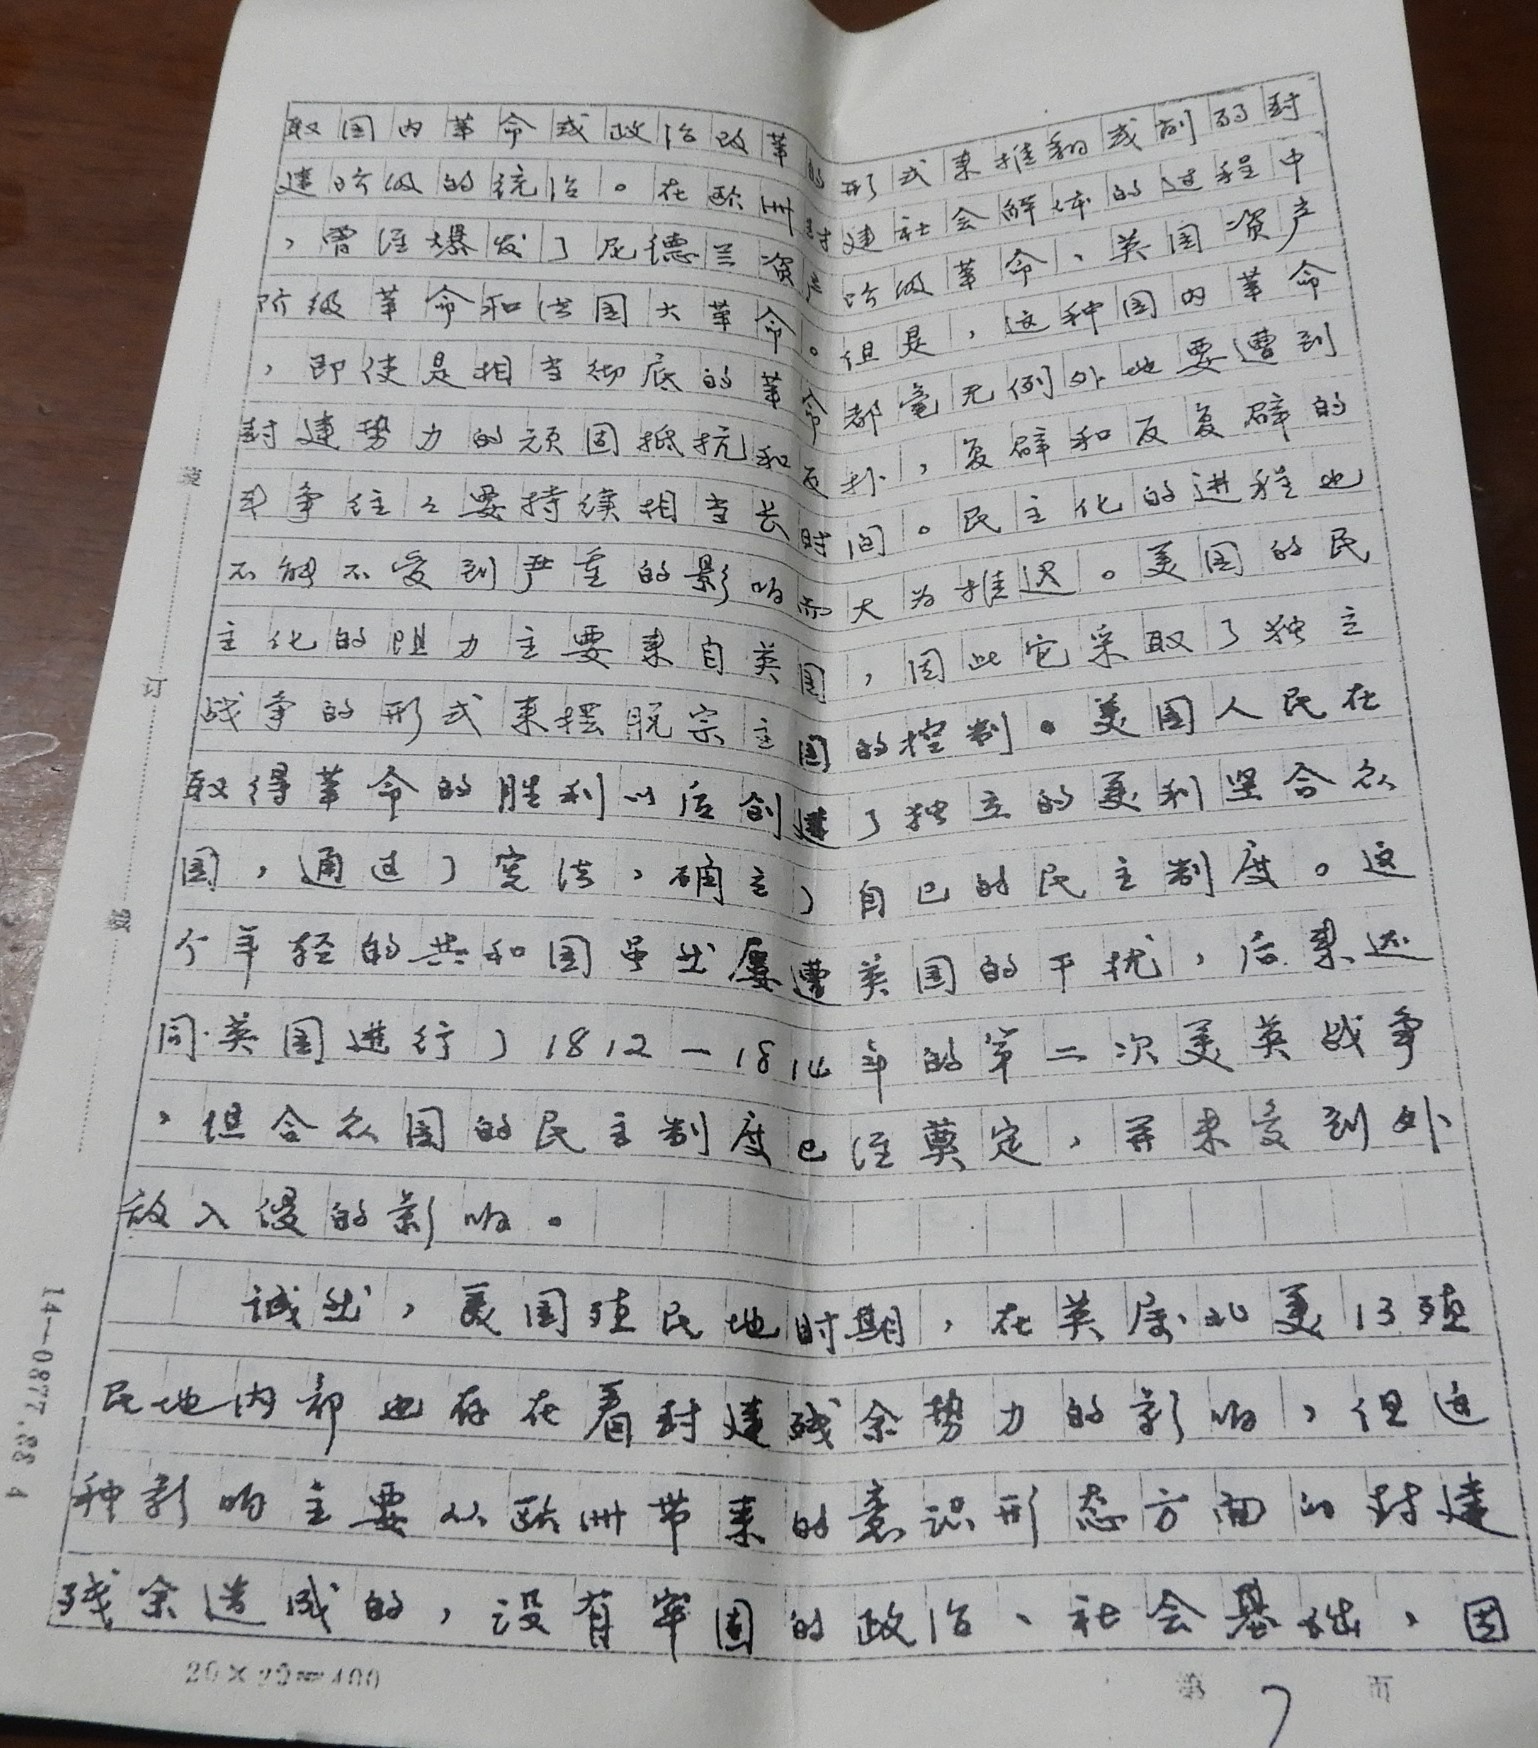 取国内革命或政治改革的形式来推翻或削弱封
建阶级的统治。在欧洲封建社会解体的过程中
，曾经爆发了尼德兰资产阶级革命、英国资产
阶级革命和法国大革命。但是，这种国内革命
，即使是相当彻底的革命都毫无例外地要遭到
封建势力的顽固抵抗和反扑，复辟和反复辟的
斗争往々要持续相当长时间。民主化的进程也
不能不受到严重的影响而大为推迟。美国的民
主化的阻力主要来自英国，因此它采取了独立
战争的形式来摆脱宗主国的控制。美国人民在
取得革命的胜利以后创建了独立的美利坚合众
国，通过了宪法，确立了自己的民主制度。这
个年轻的共和国虽然屡遭英国的干扰，后来还
同英国进行了1812—1814年的第二次美英战争
，但合众国的民主制度已经奠定，并未受到外
敌入侵的影响。
诚然，美国殖民地时期，在英属北美13殖
民地内部也存在着封建残余势力的影响，但这
种影响主要从欧洲带来的意识形态方面的封建
残余造成的，没有牢固的政治、社会基础，因
装
订
线
14—0877.88 4
20×20=400
第 7 页